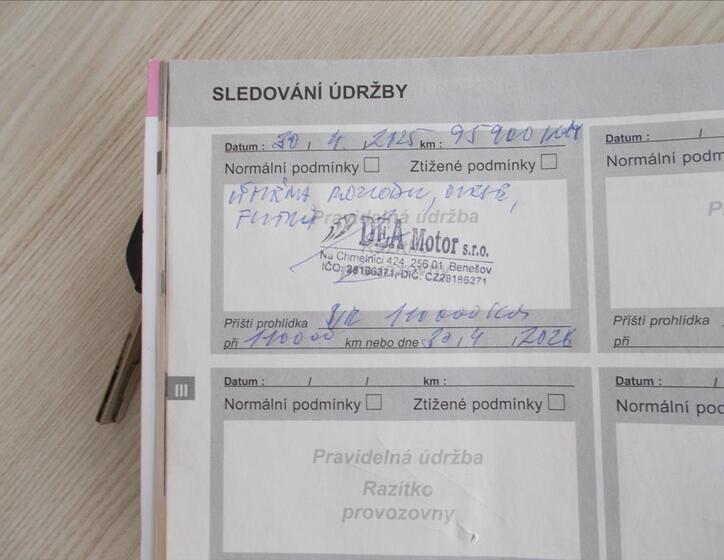 SLEDOVÁNÍ ÚDRŽBY
Datum : 30 . 4 . 2125 km : 95 900 km
Normální podmínky Ztížené podmínky
VÝMĚNA ROZVODU, OLEJE,
FILTRŮ
Pravidelná údržba
DEA Motor s.r.o.
Na Chmelnici 424, 256 01 Benešov
IČO: 28186371, DIČ: CZ28186371
Příští prohlídka 110000 km
při 110000 km nebo dne 30 . 4 . 2026
Datum : / /
Normální podm
P
Příští prohlídka
při
III
Datum : / / km :
Normální podmínky Ztížené podmínky
Pravidelná údržba
Razítko
provozovny
Datum : /
Normální podmí